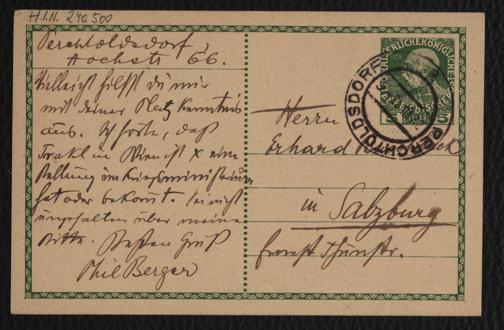 H.I.N. 240.500
Perchtoldsdorf
Hochstr 66.
Vielleicht hilfst du mir
mit deiner Platz Kenntnis
aus. Ich hörte, daß
Trakl in Wien ist x eine
Stellung im Kriegsministerium
hat oder bekomt. Sei nicht
ungehalten über meine
Bitte. Besten Gruß
Phil Berger
KAISERLICHE KÖNIGLICHE
5 5
PERCHTOLDSDORF
Herrn
Erhard
in Salzburg